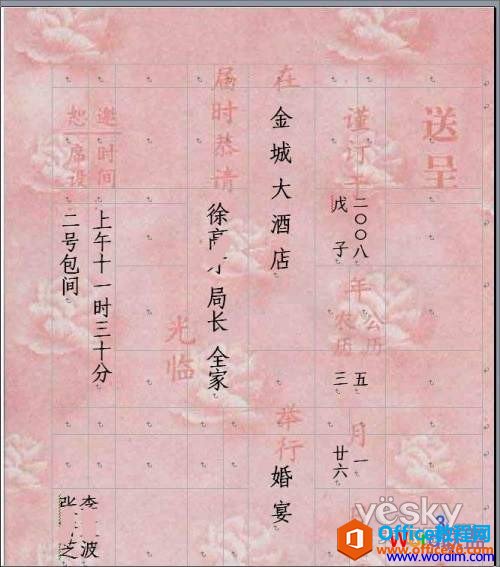 送呈
谨订于
二〇〇八年公历五月一
戊子农历三廿六
在金城大酒店举行婚宴
届时恭请
徐高局长全家
光临
邀时间
上午十一时三十分
恕席设
二号包间
李波
张之
yësky
Office教程网
www.office26.com
www.wordlm.com